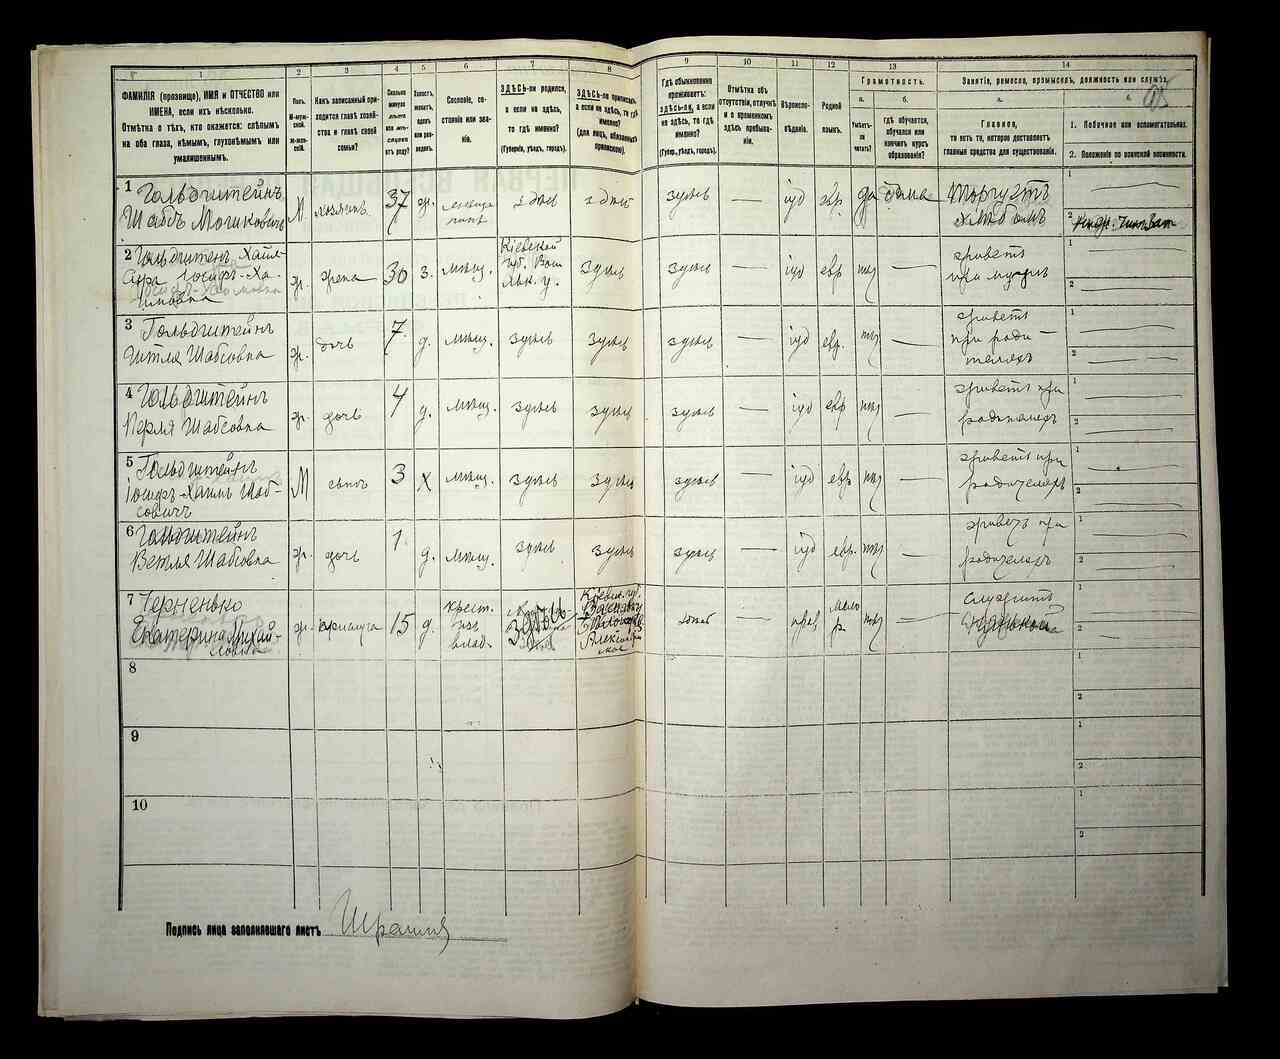 1 2 3 4 5 6 7 8 9 10 11 12 13 14
ФАМИЛІЯ (прозвище), ИМЯ и ОТЧЕСТВО или
ИМЕНА, если ихъ нѣсколько.
Отмѣтка о тѣхъ, кто окажется: слѣпымъ
на оба глаза, нѣмымъ, глухонѣмымъ или
умалишеннымъ.
Полъ.
М-мужской.
Ж-женскій.
Какъ записанный приходится
главѣ хозяйства
и главѣ своей
семьи?
Сколько
минуло
лѣтъ
или мѣсяцевъ
отъ роду?
Холостъ,
женатъ,
вдовъ
или разведенъ.
Сословіе, состояніе
или званіе.
ЗДѢСЬ-ли родился,
а если не здѣсь,
то гдѣ именно?
(Губернія, уѣздъ, городъ).
ЗДѢСЬ-ли приписанъ,
а если не здѣсь, то гдѣ
именно?
(для лицъ, обязанныхъ
припиской).
Гдѣ обыкновенно
проживаетъ:
здѣсь-ли, а если
не здѣсь, то гдѣ
именно?
(Губерн., уѣздъ, городъ).
Отмѣтка объ
отсутствіи, отлучкѣ
и о временномъ
здѣсь пребываніи.
Вѣроисповѣданіе.
Родной
языкъ.
Грамотность.
а.
Умѣетъ-ли
читать?
б.
гдѣ обучается,
обучался или
кончилъ курсъ
образованія?
Занятіе, ремесло, промыселъ, должность или служба.
а.
Главное,
то есть то, которое доставляетъ
главныя средства для существованія.
1. Побочное или вспомогательное.
2. Положеніе по воинской повинности.
1 Гольдштейнъ
Шабсъ Мошковичъ М хозяинъ 37 ж. здѣсь здѣсь здѣсь — іуд евр да дома Торгуетъ
хлѣбомъ
2 Гольдштейнъ Хаил-
Сура Іосифъ-Ха-
имовна ж. жена 30 з. мѣщ. Кіевской
губ. Вас
льк. у. здѣсь здѣсь — іуд евр — живетъ
при мужѣ
3 Гольдштейнъ
Гитля Шабсовна ж. дочь 7 д. мѣщ. здѣсь здѣсь здѣсь — іуд евр. — живетъ
при роди
теляхъ
4 Гольдштейнъ
Перля Шабсовна ж. дочь 4 д. мѣщ. здѣсь здѣсь здѣсь — іуд евр — живетъ при
родителяхъ
5 Гольдштейнъ
Іосифъ-Хаимъ Шаб-
совичъ М сынъ 3 х мѣщ. здѣсь здѣсь здѣсь — іуд евр — живетъ при
родителяхъ
6 Гольдштейнъ
Ветля Шабсовна ж. дочь 1 д. мѣщ. здѣсь здѣсь здѣсь — іуд евр. — живетъ при
родителяхъ
7 Черненько
Екатерина Михай-
ловна ж. прислуга 15 д. крест.
изъ
влад. здѣсь прав мало
р — служитъ
8
9
10
Подпись лица заполнявшаго листъ